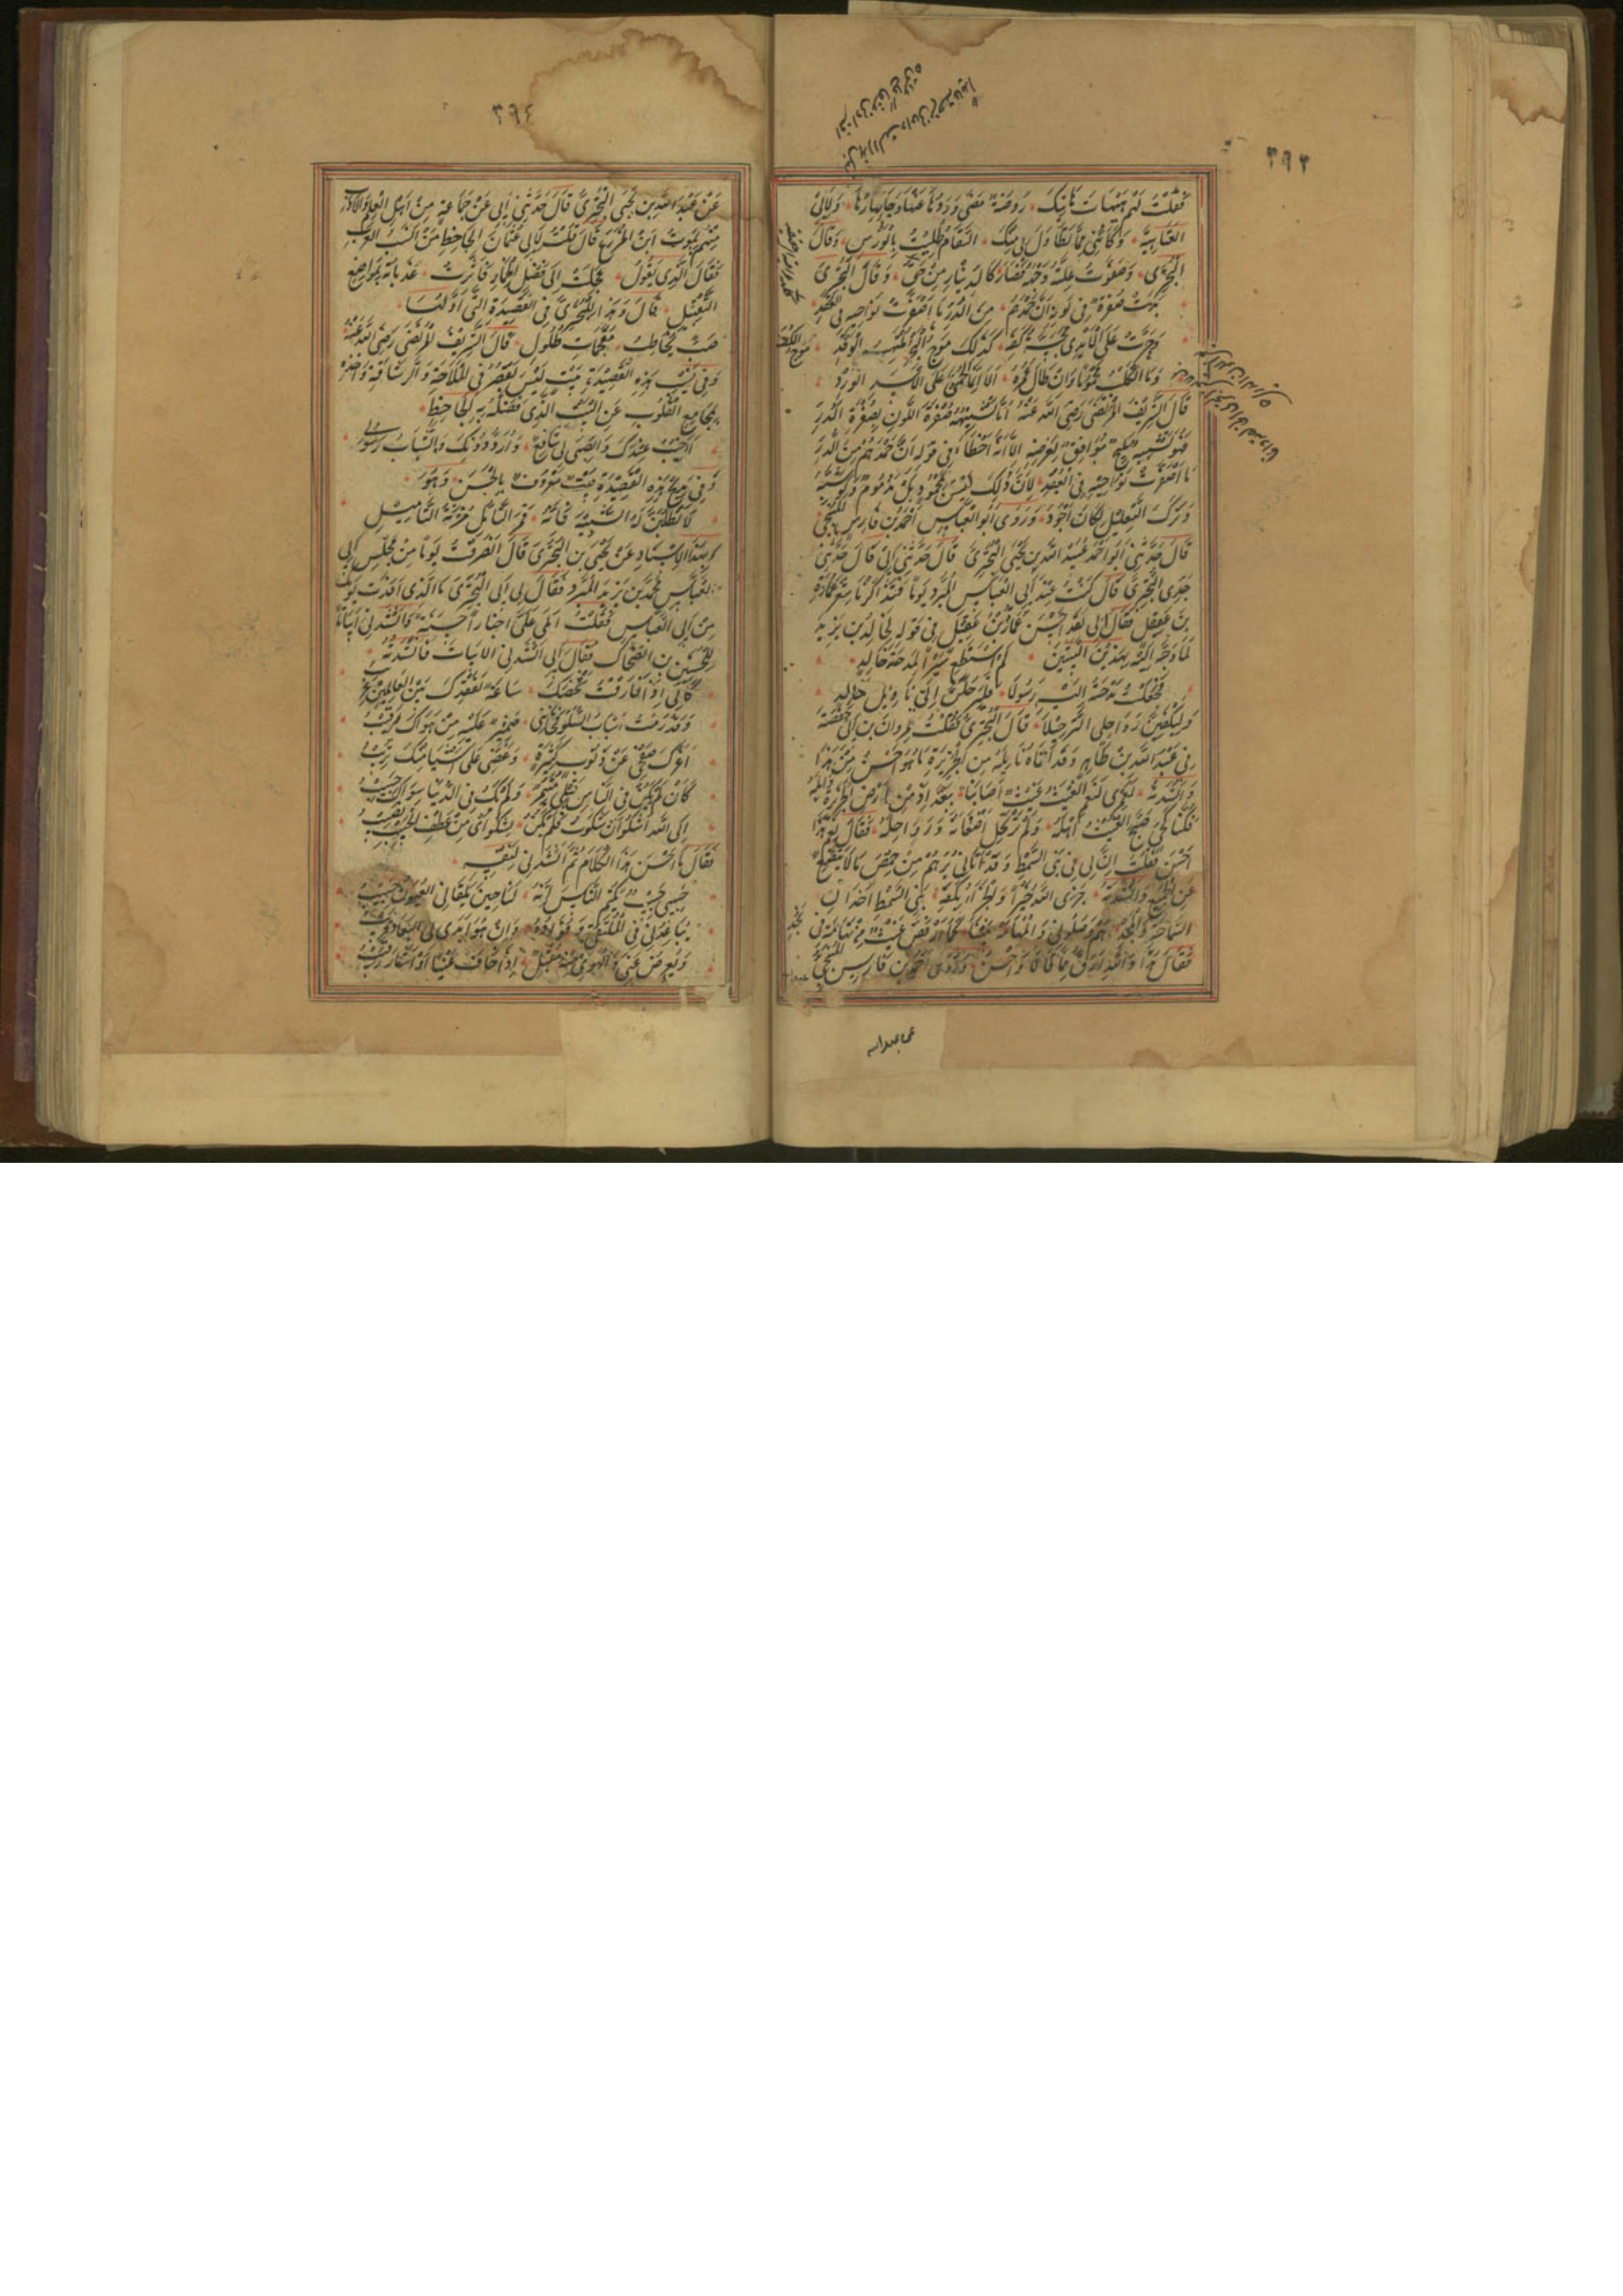 ٣٩٣
فقلت لهم هيهات هاتيك روضة مضى وردها عنها وجا بهارها وقال ابن
العتاهية وكأنني مما تطاول بي منك السقام طليت بالورس وقال
البحتري وصفرت علته وجهه فصار كالدينار من حق وقال البحتري
بدت صفرة في لونه ان حمدهم من الدر ما اصفرت نواحيه في العقد
وجرت على الأيدي مجسة كفه كذلك موج البحر ملتهب الوقد
وما الكلب محموما وان طال عمره ألا انما الحمى على الأسد الورد
قال الشريف المرتضى رضي الله عنه اما تشبيهه صفرة اللون بصفرة الدر
فهو تشبيه مليح موافق لغرضه الا انه اخطأ في قوله ان حمدهم من الدر
ما اصفرت نواحيه في العقد لأن ذلك ليس بمحمود بل مذموم ولو شبه
وترك التعليل لكان اجود وروى ابو العباس احمد بن فارس المنبجي
قال حدثني ابو احمد عبيد الله بن يحيى البحتري قال حدثني ابي قال حدثني
جدي البحتري قال كنت عند ابي العباس المبرد يوما فتذاكرنا شعر عمارة
بن عقيل فقال لي لقد احسن عمارة بن عقيل في قوله لخالد بن يزيد
لما وجه اليه بهذين البيتين لم استطع سيرا لمدحة خالد
فجعلت مدحته اليه رسولا فليرحلن الي نائل خالد
وليكفين رواحلي الترحيلا قال البحتري فقلت لمروان بن ابي حفصة
في عبد الله بن طاهر وقد اتاه نائله من الجزيرة ما هو احسن من هذا
وانشدته لعمري لنعم الغيث غيث اصابنا ببغداد من ارض الجزيرة وابله
فكنا كحي صبح الغيث اهله ولم ترتحل اضعانه ورواحله فقال لي هذا
احسن فقلت ان لي في بني السمط وقد اتاني برهم من حمص ما لا يتضع
عن الجميع وانشدته جزى الله خيرا والجزاء بكفه بني السمط اخدان
السماحة والمجد هم وصلوني والمهامه بيننا كما ارفض غيث من تهامة في نجد
فقال هذا والله ارق مما قالا واحسن وروى احمد بن فارس المنبجي
عن عبيد الله
٣٩٤
عن عبيد الله بن يحيى البحتري قال حدثني ابي عن جماعة من اهل العلم والادب
منهم يموت ابن المزرع قال قلت لابي عثمان الجاحظ من انسب العرب
فقال الذي يقول عجلت الى فضل الخمار فأثرت عذباته بمواضع
التقبيل قال وهذا للبحتري في القصيدة التي اولها
صب يخاطب مفحمات طلول قال الشريف المرتضى رضي الله عنه
وفي نسيب هذه القصيدة بيت ليس يقصر في الملاحة والرشاقة واخذه
بمجامع القلوب عن البيت الذي فضله به الجاحظ
أأخيب عندك والصبى لي شافع وأرد دونك والشباب رسولي
وفي مديح هذه القصيدة بيت معروف بالحسن وهو
لا تطلبن له الشبيه فانه قمر التأمل مزنة التأميل
وبهذا الاسناد عن يحيى بن البحتري قال انصرفت يوما من مجلس ابي
العباس محمد بن يزيد المبرد فقال لي ابي البحتري ما الذي افدت يومك
من ابي العباس فقلت املى علي اخبارا حسنة وانشدني ابياتا
للحسين بن الضحاك فقال ابي انشدني الابيات فانشدته
كأني اذا فارقت شخصك ساعة لفقدك بين العالمين غريب
وقد رمت اسباب السلو فخانني ضمير عليه من هواك رقيب
اغرك صفحي عن ذنوب كثيرة وغضي على اشياء منك تريب
كأن لم يكن في الناس قبلي متيم ولم يك في الدنيا سواك حبيب
الى الله اشكو ان شكوت فلم يكن لشكواي من عطف الحبيب نصيب
فقال ما احسن هذا الكلام ثم انشدني لنفسه
حبيبي حبيب يكتم الناس انه لنا حين تلقاني العيون حبيب
يباعدني في الملتقى وفؤاده وان هو ابدى لي البعاد قريب
ويعرض عني والهوى منه مقبل اذا خاف عينا او اشار رقيب